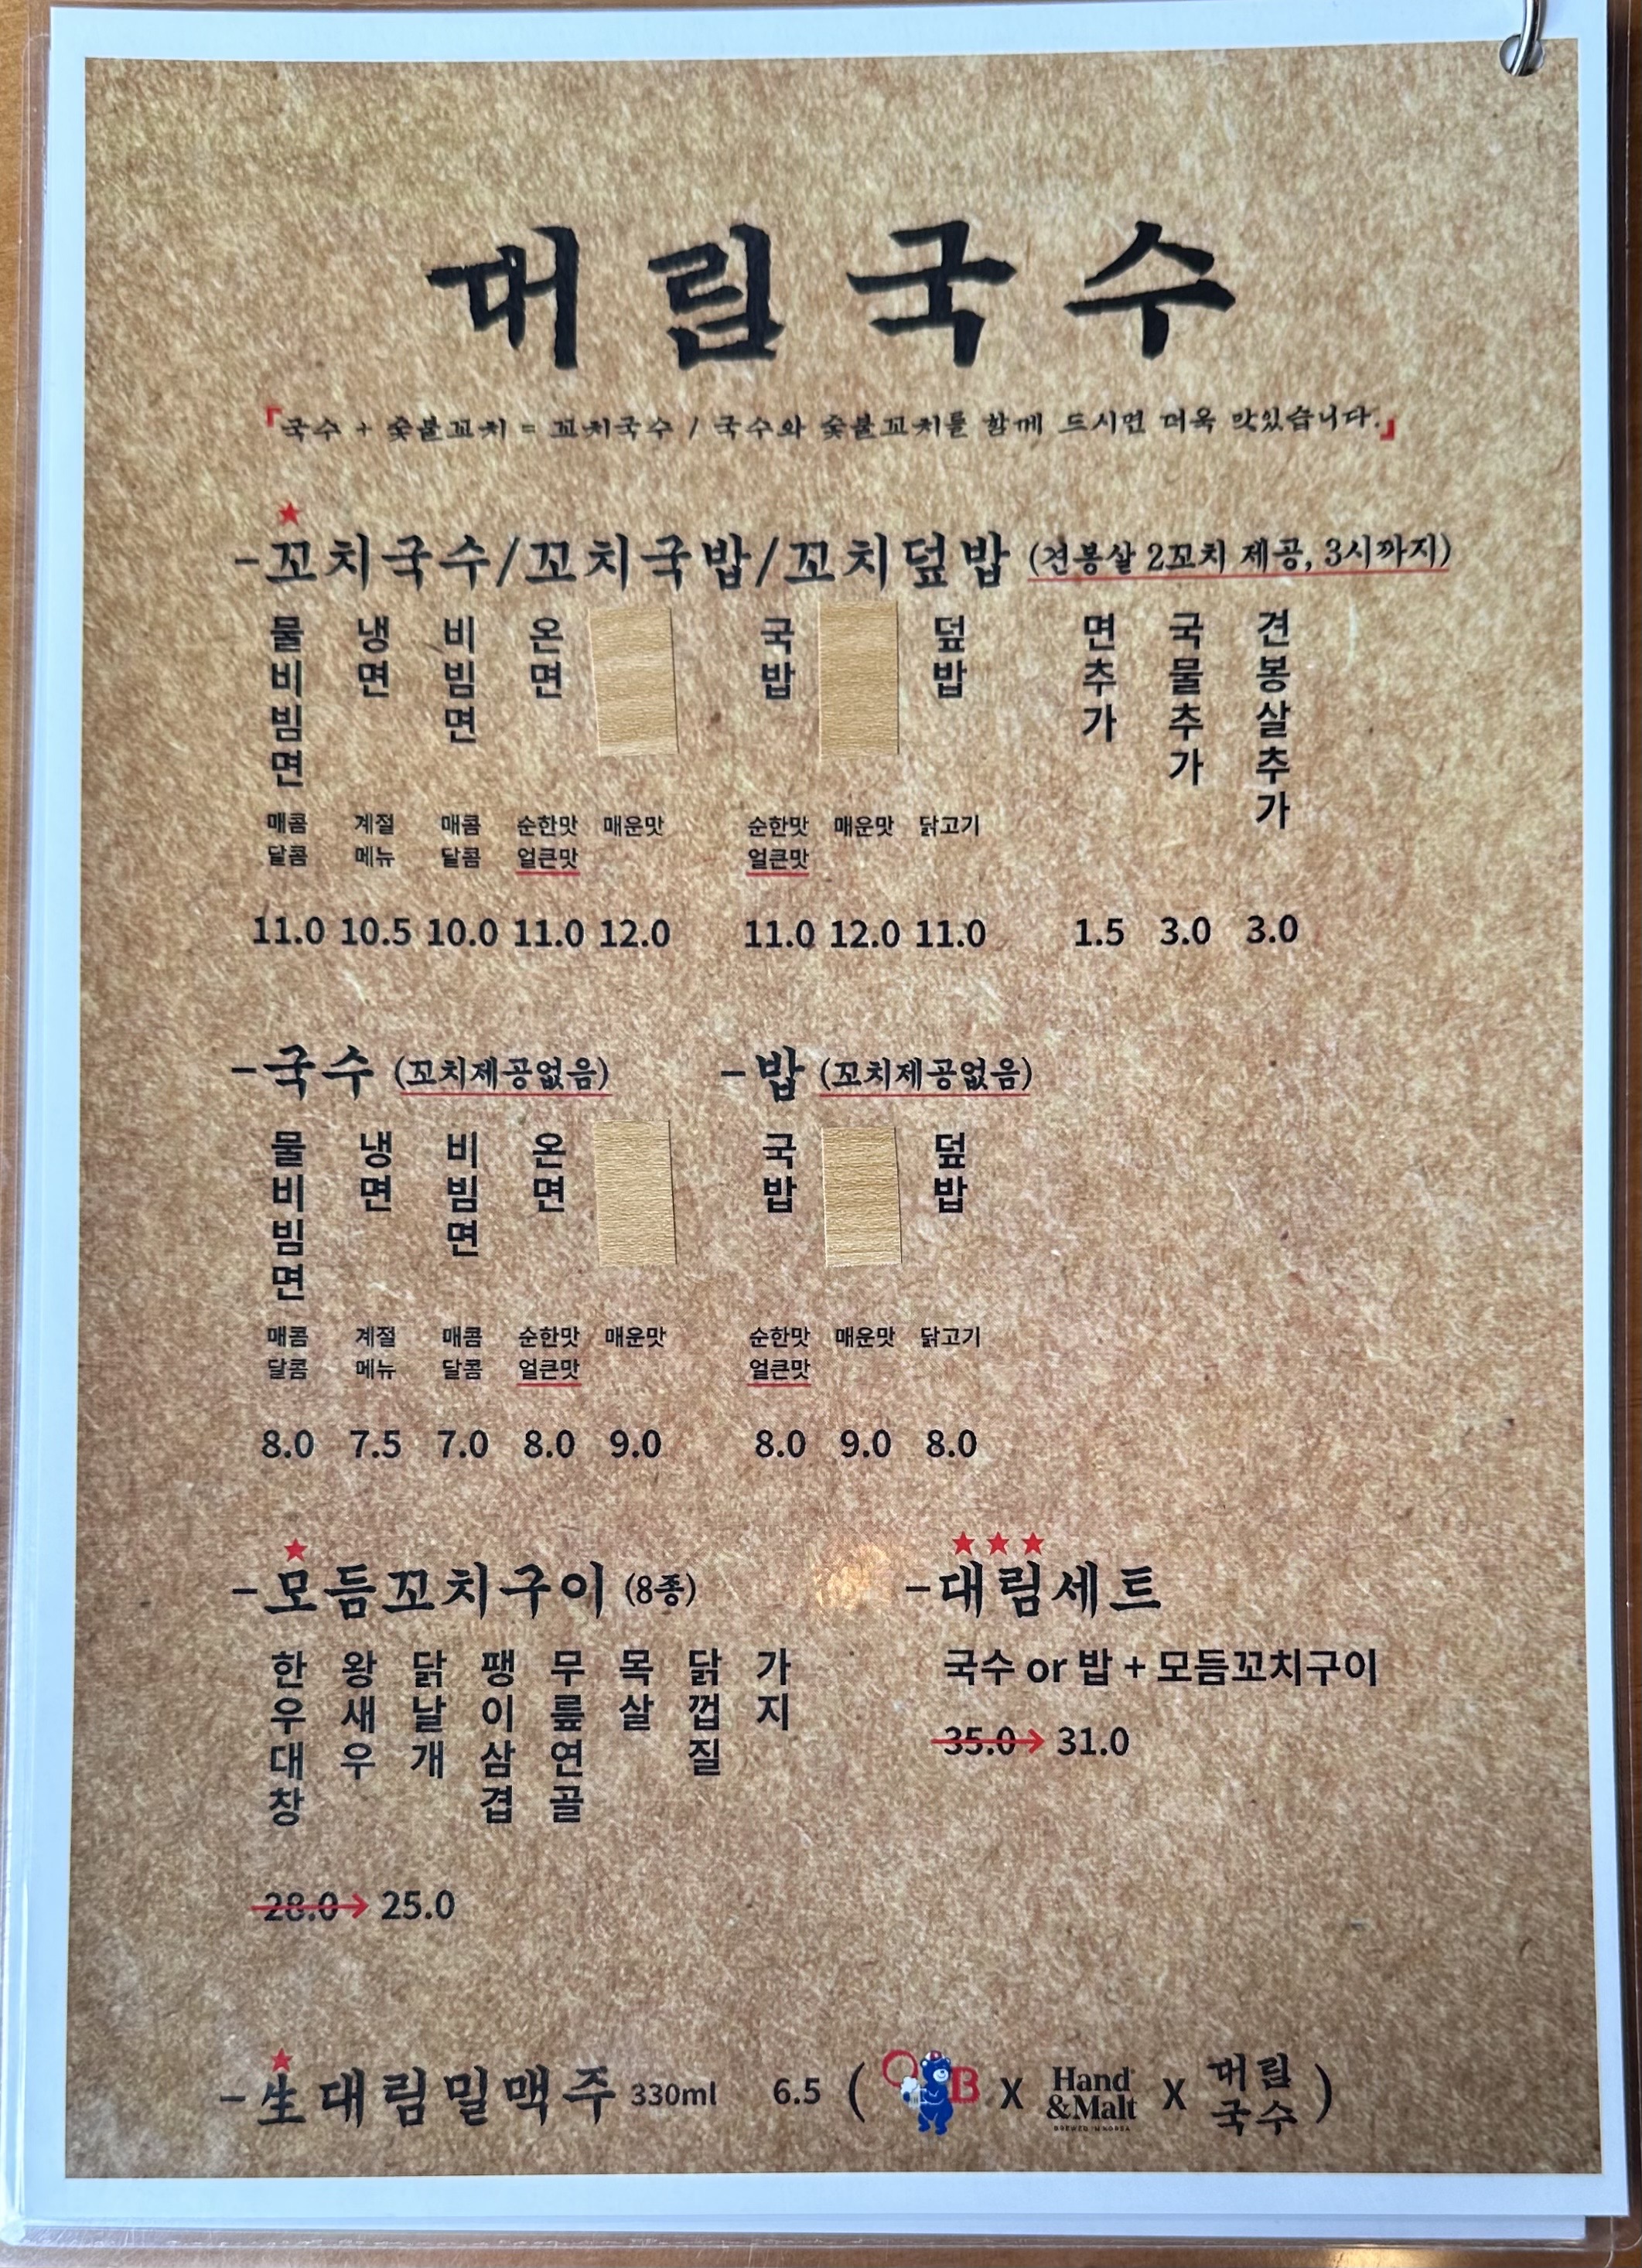 대림국수
『국수 + 숯불꼬치 = 꼬치국수 / 국수와 숯불꼬치를 함께 드시면 더욱 맛있습니다.』
-꼬치국수/꼬치국밥/꼬치덮밥 (견봉살 2꼬치 제공, 3시까지)
물비빔면 냉면 비빔면 온면 국밥 덮밥 면추가 국물추가 견봉살추가
매콤 계절 매콤 순한맛 매운맛 순한맛 매운맛 닭고기
달콤 메뉴 달콤 얼큰맛 얼큰맛
11.0 10.5 10.0 11.0 12.0 11.0 12.0 11.0 1.5 3.0 3.0
-국수 (꼬치제공없음) -밥 (꼬치제공없음)
물비빔면 냉면 비빔면 온면 국밥 덮밥
매콤 계절 매콤 순한맛 매운맛 순한맛 매운맛 닭고기
달콤 메뉴 달콤 얼큰맛 얼큰맛
8.0 7.5 7.0 8.0 9.0 8.0 9.0 8.0
-모듬꼬치구이 (8종)
한우대창 왕새우 닭날개 팽이삼겹 무릎연골 목살 닭껍질 가지
28.0→ 25.0
-대림세트
국수 or 밥 + 모듬꼬치구이
35.0→ 31.0
-生대림밀맥주 330ml 6.5 ( OB X Hand &Malt BREWED IN KOREA X 대림국수 )